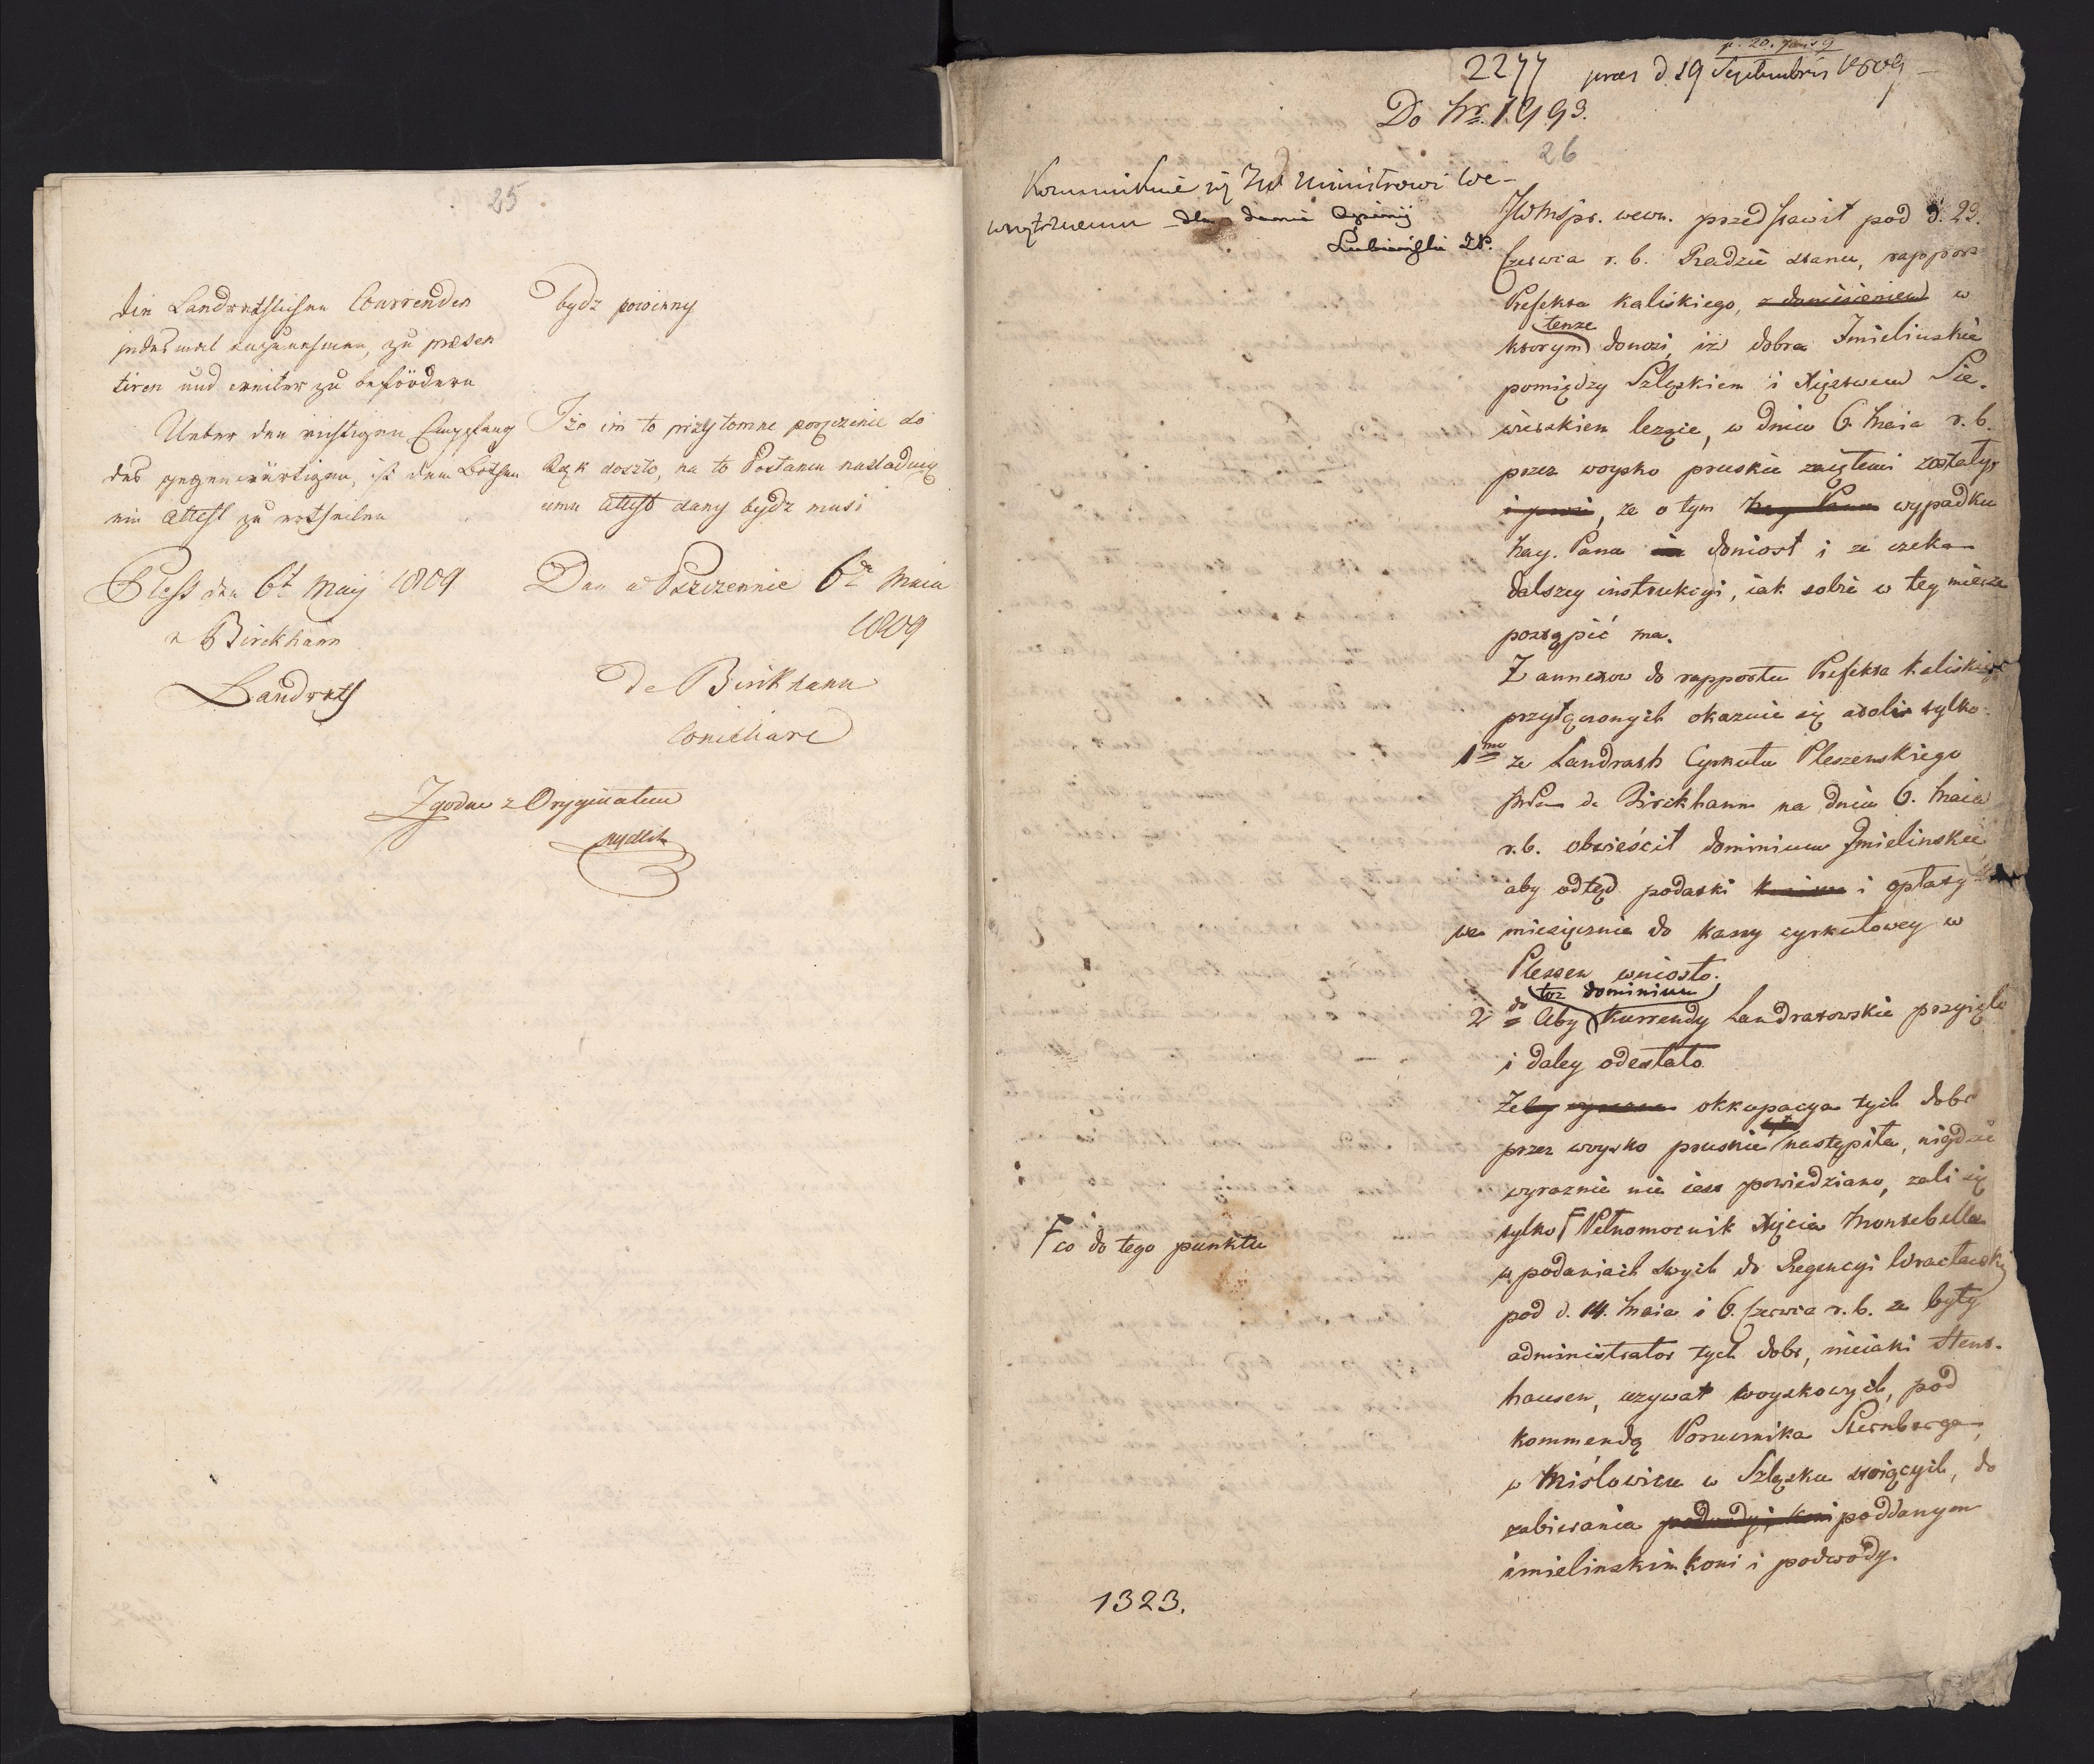 25
die Landräthlichen Courrenden
jedesmal anzunehmen, zu præsen
tiren und weiter zu befördern
Ueber den richtigen Empfang
des gegenwärtigen, ist dem Bothen
ein Attest zu ertheilen
Pless den 6t May 1809
v Birckhann
Landrath
bydz powinny
Iże im to przytomne poręczenie do
Rąk doszło, na to Postancu nasladuią
cemu Attest dany bydz musi
Dan w Pszczennie 6ta Maia
1809
De Birikhann
Conciliare
Zgodne z Oryginałem
p. 20. 9
2277 præs d. 19 Septembris 1809
Do Nr. 1993.
26
Kommunikuie się JW Ministrowi We-
wnętrznemu dla dania Opinij
Lubieński
JWMspr. wewn. przedstawił pod d. 23.
Czerwca r. b. Radzie stanu, rapport
Prefekta kaliskiego, z doniesieniem w
którym tenze donosi, iż dobra Imielinskie
pomiędzy Szląskiem i Xięstwem Sie-
wierskiem leżące, w dniu 6. Maia r. b.
przez woysko pruskie zaiętemi zostały,
że o tym Nay Pana wypadku
Nay. Pana doniosł i że czeka
dalszey instrukcyi, iak sobie w tey mierze
postąpić ma.
Z annexow do rapportu Prefekta kaliskiego
przyłączonych okazuie się atoli tylko
1mo że Landrath Cyrkułu Pleszenskiego
de Birckhann na dniu 6. Maia
r. b. obwieścił dominium Imielinskie
aby odtąd podatki i opłaty
miesięcznie do kassy cyrkułowey w
Plessen wniosło.
2do Aby toz dominium kurrendy Landratowskie przyięło
i daley odesłało.
Żeby okkupacya tych dobr
przez woysko pruskie nastąpiła, nigdzie
wyraznie nie iest powiedziano, żali się
tylko F Pełnomocnik Xięcia Montebello
F co do tego punktu
w podaniach swych do Regencyi Wrocławskiy
pod d. 14. Maia i 6. Czerwca r. b. że były
administrator tych dobr, nieiaki Stens-
hausen, używał woyskowych, pod
kommendą Porucznika Sternberga,
w Misłowicu w Szląsku stoiących, do
zabierania podwody i koni poddanym
imielinskim koni i podwody.
1323.